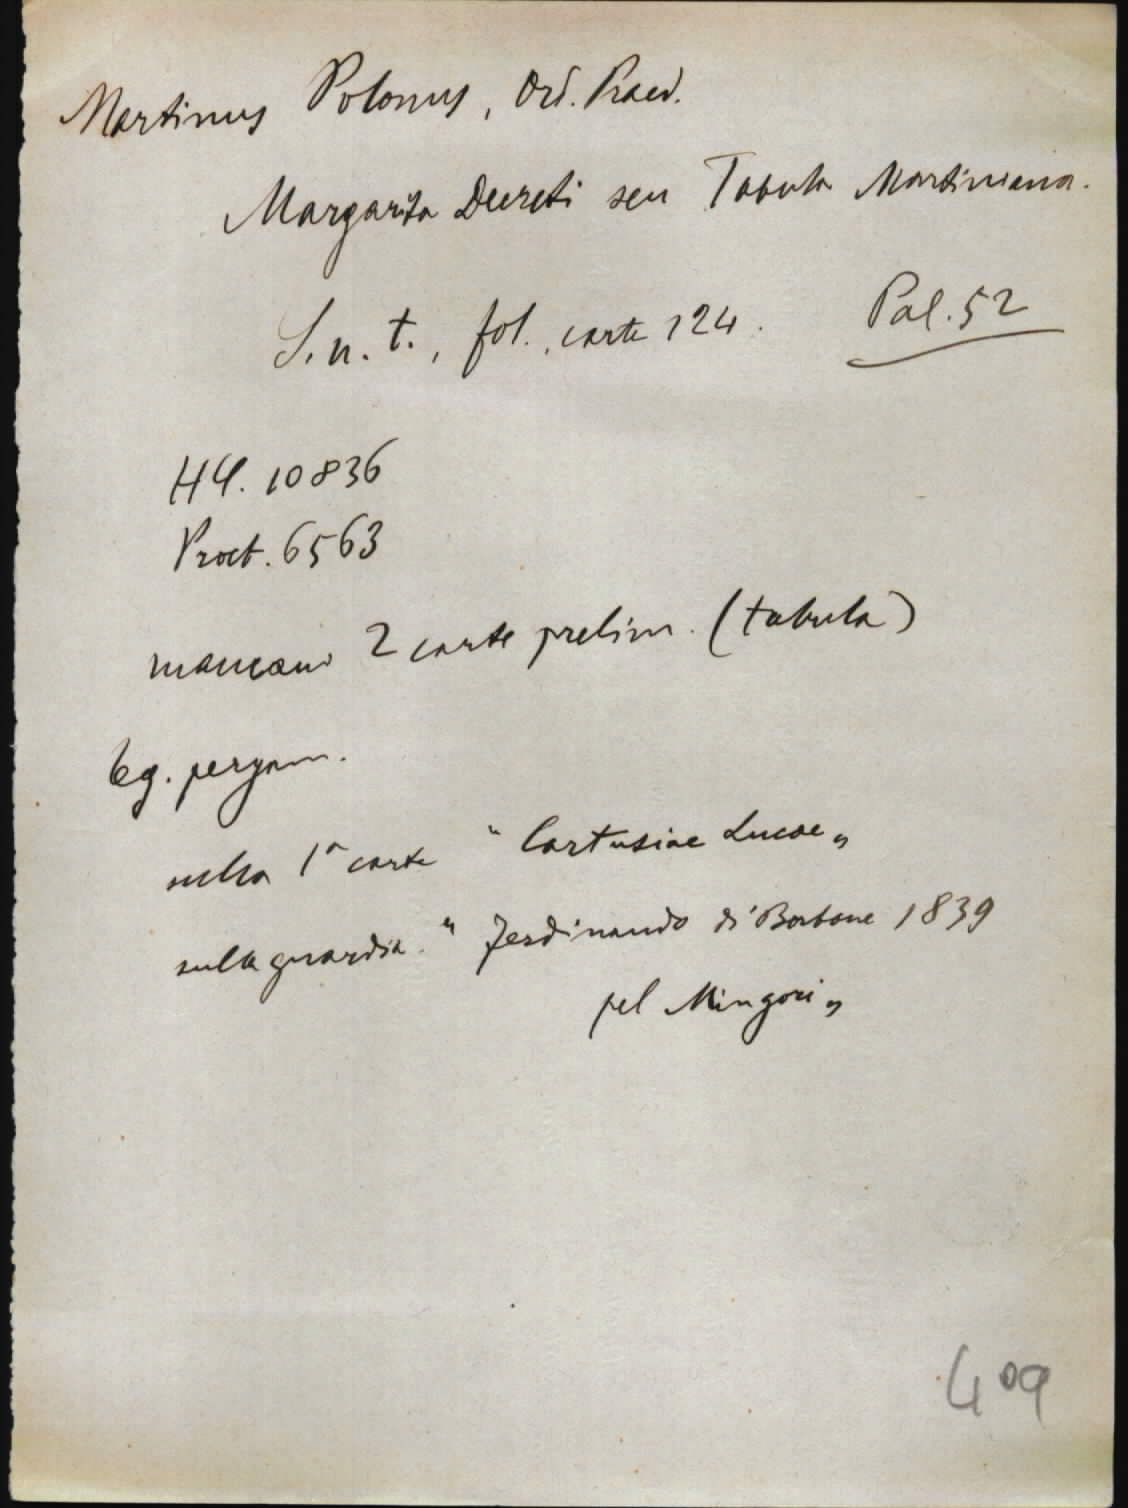 Martinus Polonus, Ord. Praed.
Margarita Decreti seu Tabula Martiniana.
S. n. t., fol., carte 124.
Pal. 52
HC. 10836
Proct. 6563
mancano 2 carte prelim. (tabula)
leg. pergam.
nella 1ª carta "Cartusiae Lucae„
sulla guardia. "Ferdinando di Borbone 1839
pel Mingori„
409